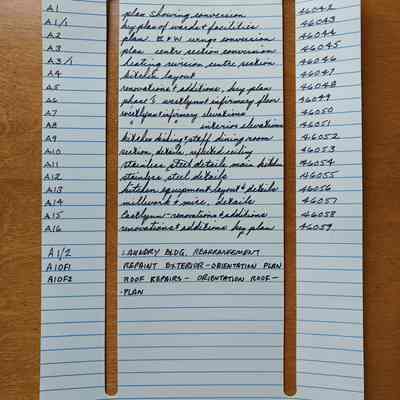 A1 plan showing conversion 46042
A1/1 key plan of wards & facilities 46043
A2 plan E & W wings conversion 46044
A3 plan centre section conversion 46045
A3/1 heating revision centre section 46046
A4 kitchen layout 46047
A5 renovations & additions, key plan 46048
A6 phase 3 infirmary floor 46049
A7 infirmary elevations 46050
A8 " " interior elevations 46051
A9 kitchen dining & staff dining room 46052
A10 section, details, reflected ceiling 46053
A11 stainless steel details main kitchen 46054
A12 stainless steel details 46055
A13 kitchen equipment layout & details 46056
A14 millwork & misc. details 46057
A15 Eastlawn - renovations & additions 46058
A16 renovations & additions key plan 46059
A1/2 LAUNDRY BLDG. REARRANGEMENT
A10F1 REPAINT EXTERIOR - ORIENTATION PLAN
A10F2 ROOF REPAIRS - ORIENTATION ROOF -
- PLAN